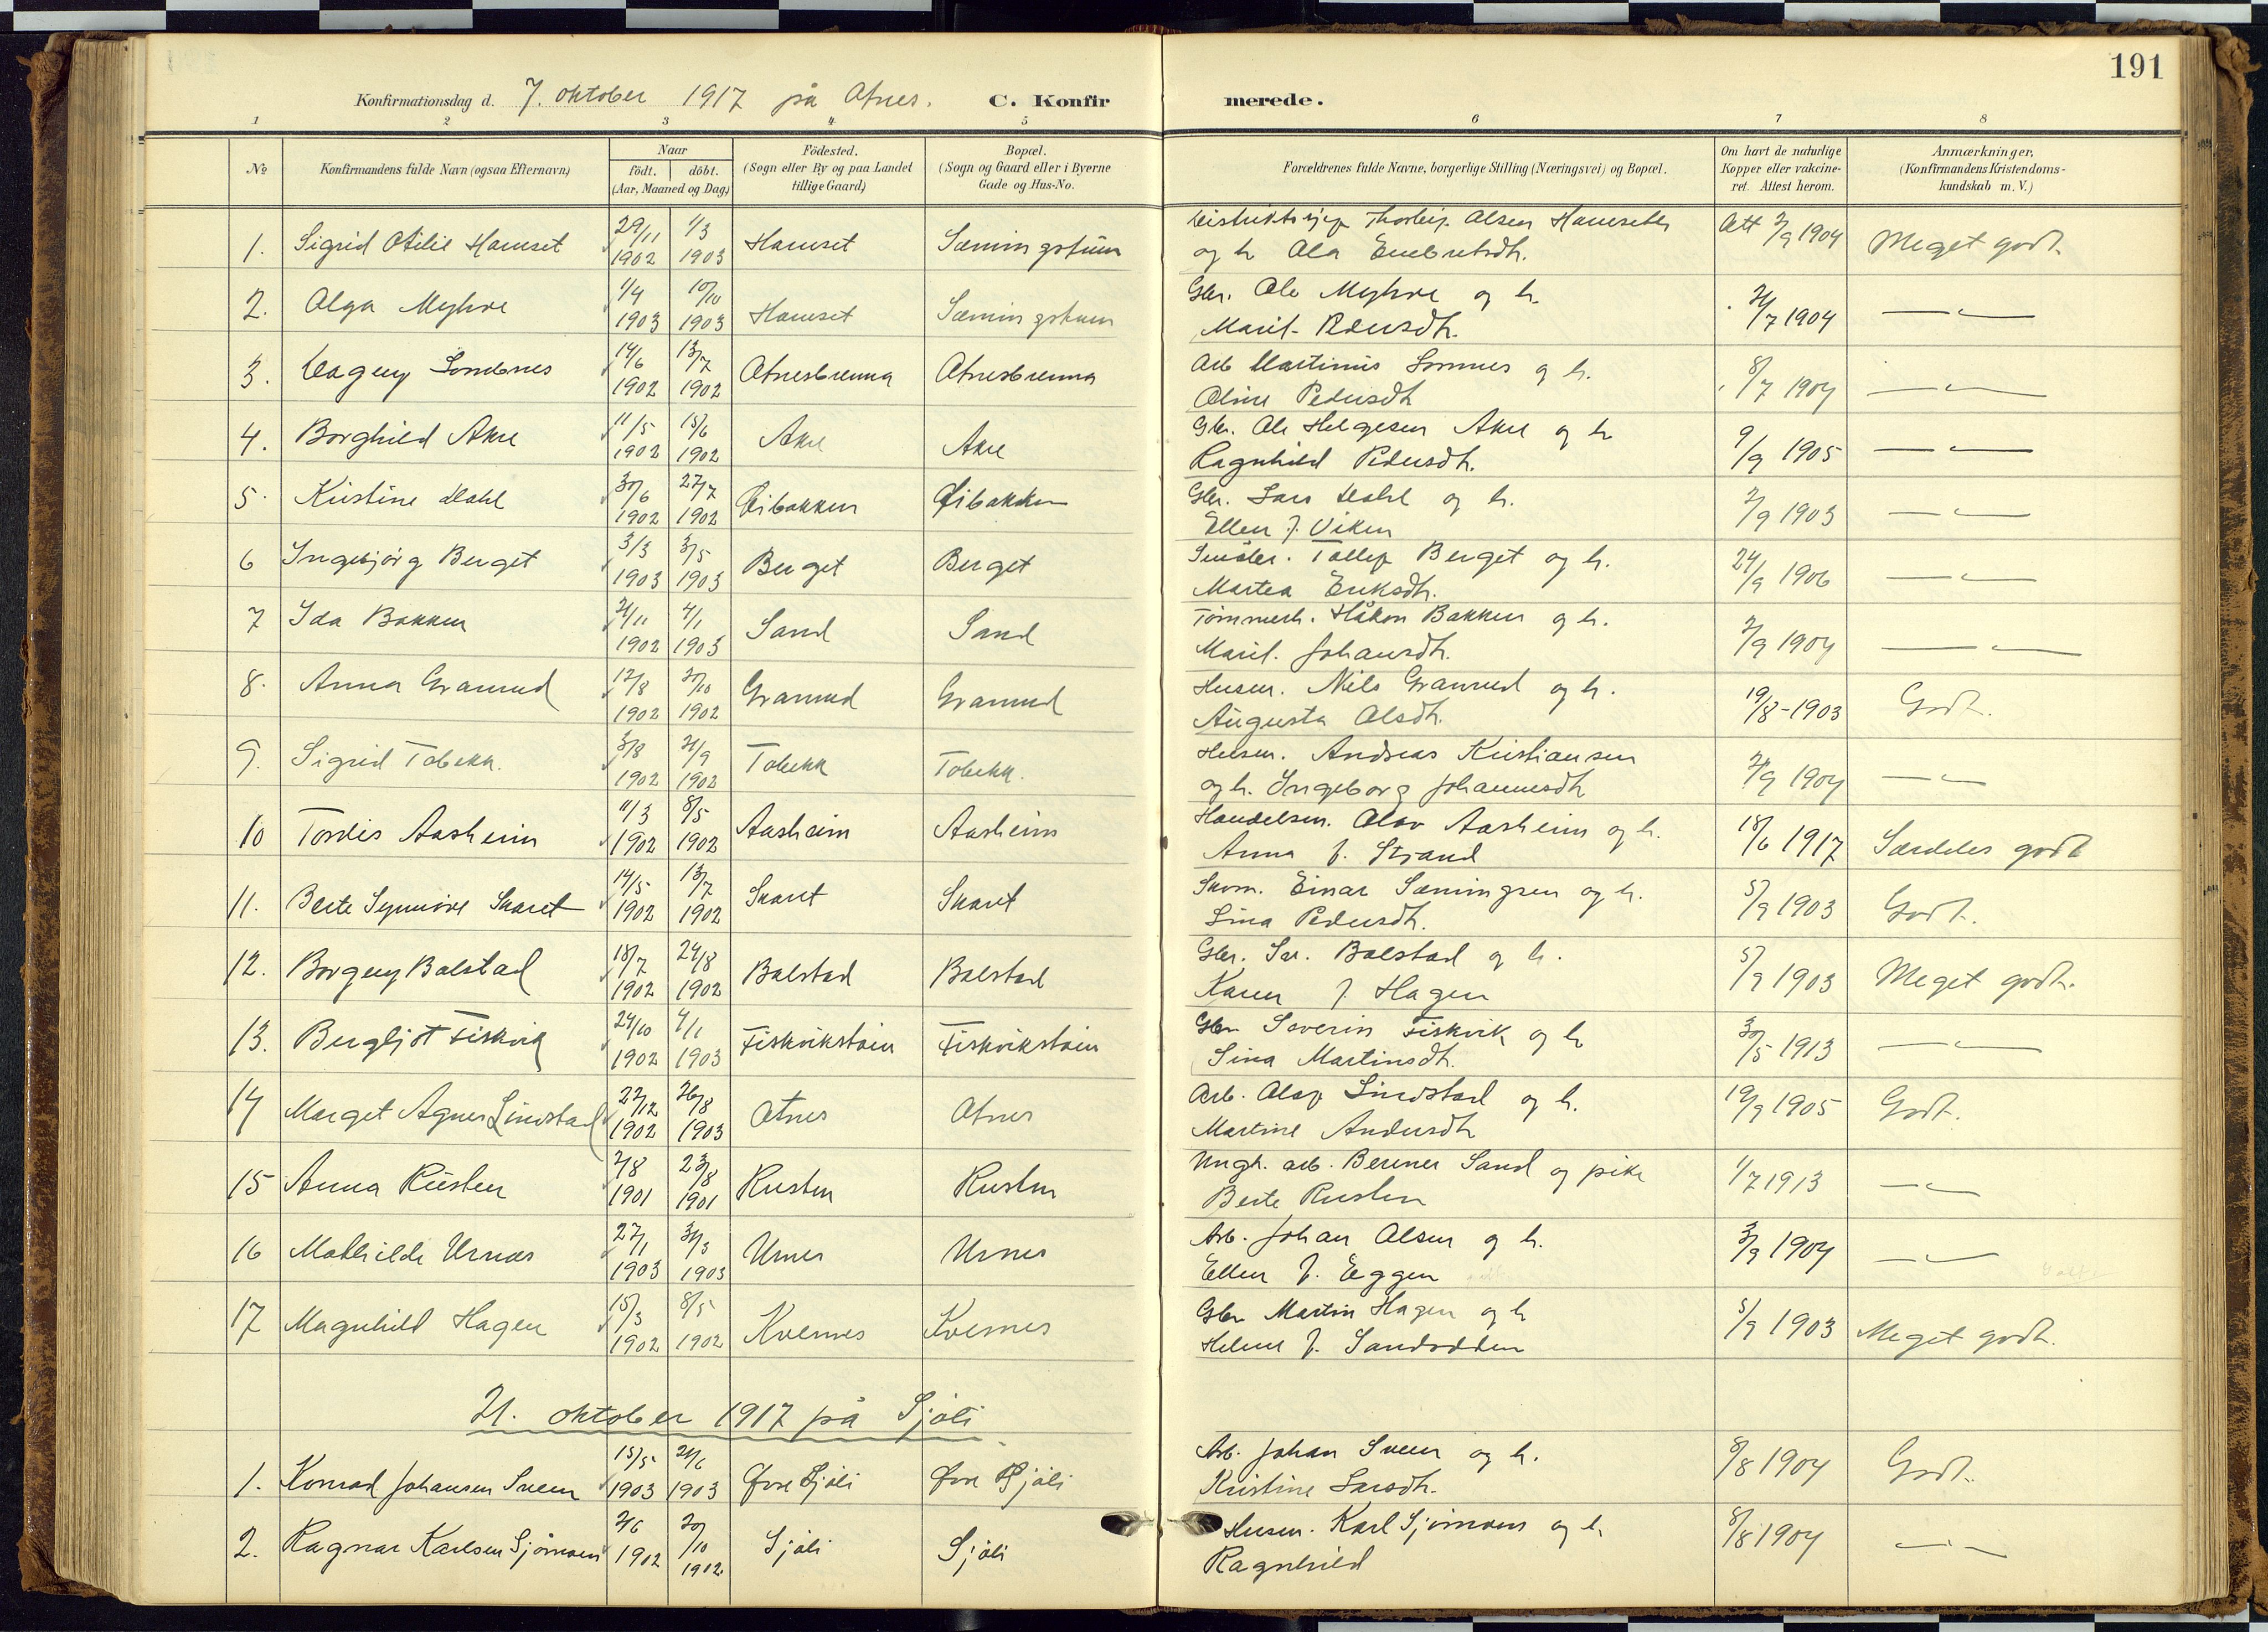 191
Konfirmationsdag d. 7. oktober 1917 på Atnes. C. Konfirmerede.
1 2 3 4 5 6 7 8
No
Konfirmandens fulde Navn (ogsaa Efternavn)
Naar
födt. döbt.
(Aar, Maaned og Dag)
Födested.
(Sogn eller By og paa Landet
tillige Gaard)
Bopæl.
(Sogn og Gaard eller i Byerne
Gade og Hus-No.
Forældrenes fulde Navne, borgerlige Stilling (Næringsvei) og Bopæl.
Om havt de naturlige
Kopper eller vakcine-
ret. Attest herom.
Anmærkninger,
(Konfirmandens Kristendoms-
kundskab m. V.)
1. Sigrid Otilie Hamset 29/11 1902 1/3 1903 Hamset Sæmingstuen Thorleif Olsen Hamseth
og h. Ola Embretsdtr. Att 2/9 1904 Meget godt.
2. Olga Myhre 1/4 1903 10/10 1903 Hamset Sæmingstuen Gbr. Ole Myhre og h.
Marit Pedersdtr. 1904 — " —
3. Dagny Sondmes 14/6 1902 13/7 1902 Atnesbrenna Atnesbrenna Arb Martinus og h.
Oline Pedersdtr 8/7 1904 — " —
4. Borghild Akre 11/5 1902 15/6 1902 Akre Akre Gbr. Ole Helgesen Akre og h
Ragnhild Pedersdtr. 9/9 1905 — " —
5. Kristine Dahl 30/6 1902 27/7 1902 Øibakken Øibakken Gbr. Lars Dahl og h.
Ellen f. Viken 2/9 1903 — " —
6 Ingebjörg Berget 3/3 1903 3/5 1903 Berget Berget Tollef Berget og h.
Martea Eriksdtr. 24/9 1906 — " —
7 Ida Bakken 21/11 1902 4/1 1903 Sand Sand Tömmerh. Håkon Bakken og h.
Marit Johansdtr. 2/9 1904 — " —
8. Anna Granrud 12/8 1902 1902 Granrud Granrud Husm. Nils Granrud og h.
Augusta Olsdtr. 19/8-1903 Godt.
9. Sigrid Tobekk. 3/8 1902 21/9 1902 Tobekk Tobekk. Husm. Andreas Kristiansen
og h. Ingeborg Johannesdtr 1904 — " —
10 Tordis Aasheim 11/3 1902 8/5 1902 Aasheim Aasheim Handelsm. Olav Aasheim og h.
Anna f. Strand 18/6 1917 Særdeles godt
11. Berte Synnöve Skaret 14/5 1902 13/7 1902 Skaret Skaret Skom. Einar Sæmingsen og h.
Lina Pedersdtr. 5/9 1903 Godt.
12. Borgny Bolstad 18/7 1902 24/8 1902 Bolstad Bolstad Gbr. Bolstad og h.
Karen f. Hagen 5/9 1903 Meget godt.
13. Bergljot Fiskvik 24/10 1902 4/1 1903 Fiskvikstøin Fiskvikstøin Gbr Severin Fiskvik og h
Sina Martinsdtr. 30/5 1913 — " —
14 Marget Agnes Lindstad 22/12 1902 26/8 1903 Atnes Atnes Arb. Olaf Lindstad og h.
Martine Andersdtr 19/9 1905 Godt.
15 Anna Rusten 2/8 1901 23/8 1901 Rusten Rusten Ungk. arb. Berener Sand og pike
Berte Rusten 1/7 1913 — " —
16 Mathilde Urnæs 27/1 1903 31/3 1903 Urnes Urnes Arb. Johan Olsen og h.
Ellen f. Eggen 3/9 1904 — " —
17 Magnhild Hagen 15/3 1902 8/5 1902 Kvernes Kvernes Gbr Martin Hagen og h
Helene f. Sandodden 5/9 1903 Meget godt.
21. oktober 1917 på Sjöli.
1. Konrad Johansen Sveen 15/5 1903 21/6 1903 Øvre Sjöli Øvre Sjöli Arb. Johan Sveen og h.
Kristine Larsdtr. 8/8 1904 Godt.
2. Ragnar Karlsen Sjömoen 2/6 1902 20/10 1902 Sjöli Sjöli Husm. Karl Sjömoen og h
Ragnhild 8/8 1904 — " —